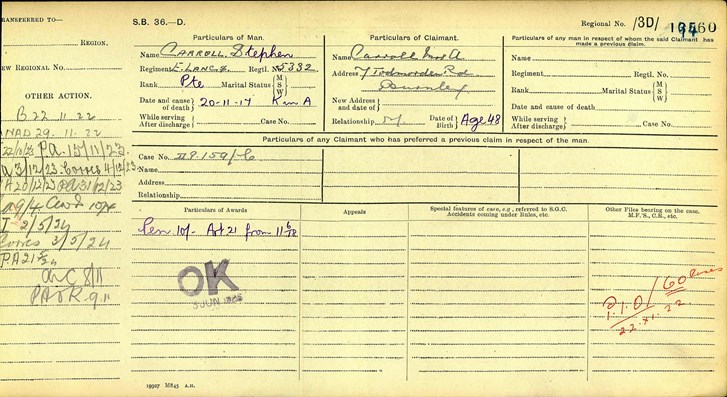 TRANSFERRED TO—
REGION.
NEW REGIONAL No.
OTHER ACTION.
B 22 11 22
NAD 29. 11. 22
22/11/23 P.A. 15/11/23.
3/12/23 Corres 4/12/23.
A 20/12/23 31/12/23
9/4
2/5/24
Corres 3/5/24
PA 21
8/11
9.11
S.B. 36.—D.
Regional No. /3D/
60
Particulars of Man.
Name CARROLL. Stephen
Regiment E. LANCS. Regtl. No. 5332
Rank Pte Marital Status M S W
Date and cause of death 20-11-17 K in A
While serving
After discharge Case No.
Particulars of Claimant.
Name Carroll Mrs A
Address 7 Todmorden Rd
Burnley
New Address and Date
Relationship M Date of Birth Age 48
While serving
After discharge Case No.
Particulars of any man in respect of whom the said Claimant has made a previous claim.
Name
Regiment Regtl. No.
Rank Marital Status M S W
Date and cause of death
While serving
After discharge Case No.
Particulars of any Claimant who has preferred a previous claim in respect of the man.
Case No.
Name
Address
Relationship
Particulars of Awards
Appeals
Special features of case, e.g., referred to S.G.C. Accidents coming under Rules, etc.
Other Files bearing on the case. M.F.'s, C.R., etc.
Pen 10/- Art 21 from
OK
P.I.O/60
22.XI.22.
19927 M845 A.H.